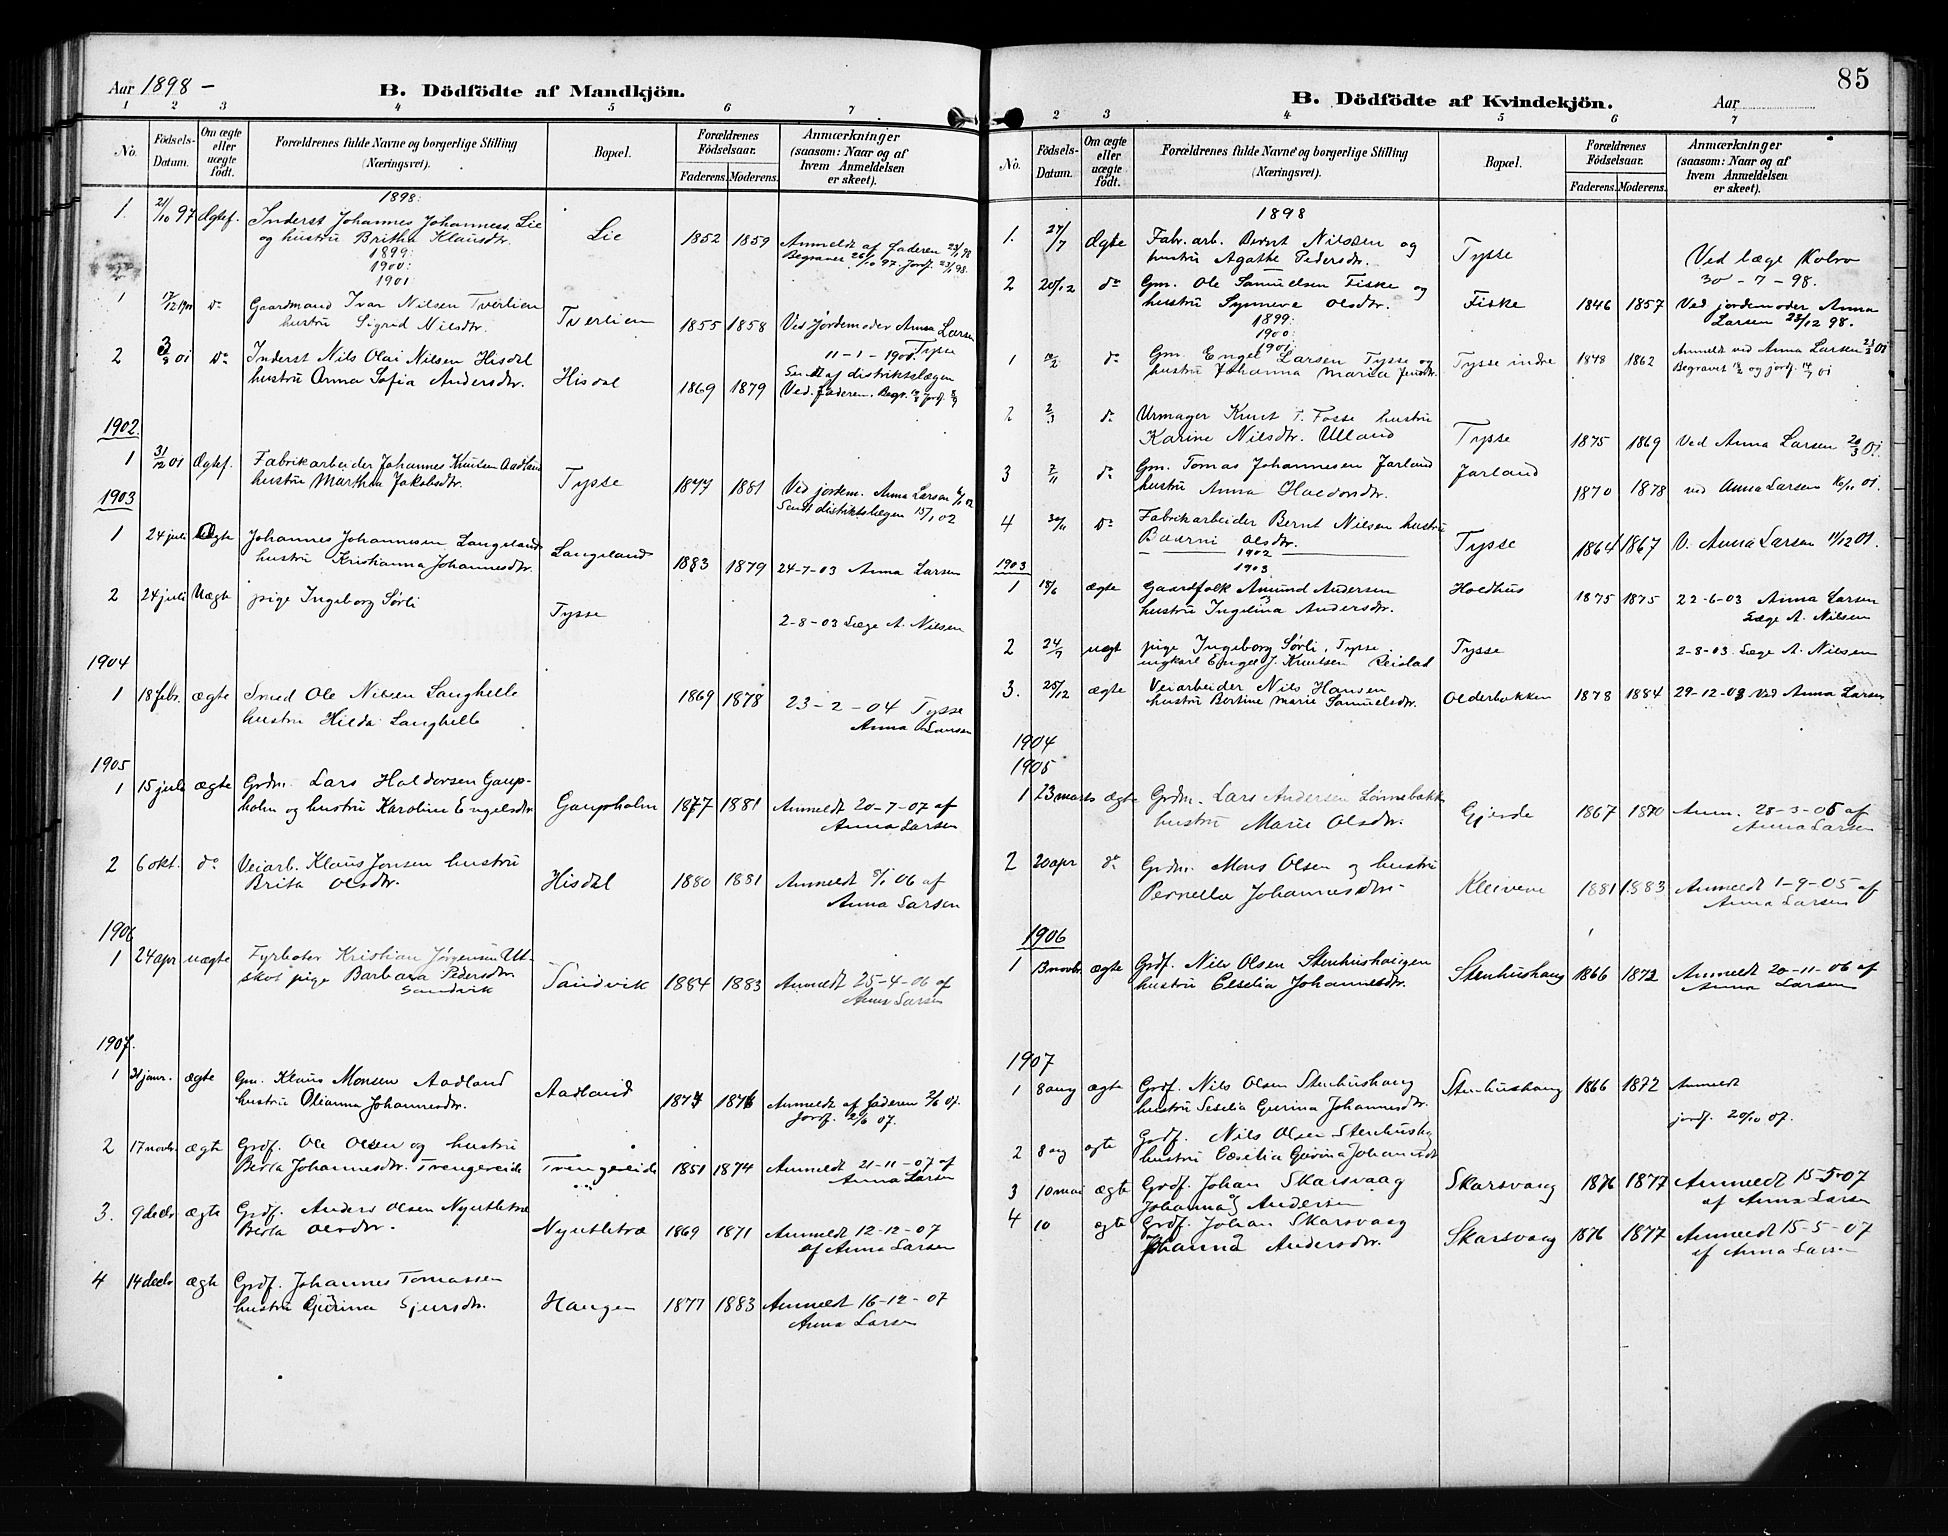 Aar 1898 –
B. Dödfödte af Mandkjön.
1 2 3 4 5 6 7
No.
Födsels-Datum.
Om ægte eller uægte födt.
Forældrenes fulde Navne og borgerlige Stilling (Næringsvei).
Bopæl.
Forældrenes Födselsaar.
Faderens. Moderens.
Anmærkninger (saasom: Naar og af hvem Anmeldelsen er skeet).
1898:
1. 21/10 97 Ægtef. Inderst Johannes Johanness. Lie
og hustru Britha Klausdtr. Lie 1852 1859 Anmeldt af faderen 23/1 98
Begravet 26/10 97. Jordf. 23/1 98.
1899:
1900:
1901
1 17/12 do Gaardmand Ivar Nilsen Tverlien
hustru Sigrid Nilsdtr. Tverlien 1855 1858 Ved Jordemoder Anna Larsen
Tysse
11-1-1900
2 3/3 01 do Inderst Nils Olai Nilsen Hisdal Sendt af distriktslægen
hustru Anna Sofia Andersdtr. Hisdal 1869 1879 Ved faderen.
1902.
1 31/12 01 Ægtef. Fabrikarbeider Johannes Knutsen Aadland
hustru Martha Jakobsdtr. Tysse 1877 1881 Ved jordem. Anna Larsen 6/1 02
Sendt distriktslægen 15/1 02
1903
1 24 juli Ægte Johannes Johannesen Langeland
hustru Kristianna Johannesdtr. Langeland 1883 1879 24-7-03 Anna Larsen
2 24 juli Uægte pige Ingeborg Sørli Tysse 2-8-03 Læge A. Nilsen
1904
1 18 febr. ægte Smed Ole Nilsen Langhelle 1869 1878 23-2-04 Tysse
hustru Hilda Langhelle Anna Larsen
1905
1 15 juli ægte Grdm. Lars Haldorsen Gaup-
holm og hustru Karoline Engelsdtr Gaupholm 1877 1881 Anmeldt 20-7-07 af
Anna Larsen
2 6 okt. do Veiarb. Klaus Jonsen hustru
Brita Olsdtr. Hisdal 1880 1881 Anmeldt 5/1 06 af
Anna Larsen
1906
1 24 apr uægte Fyrbøter Kristian Jørgensen Ut-
skot pige Barbara Pedersdtr.
Sandvik Sandvik 1884 1883 Anmeldt 25-4-06 af
Anna Larsen
1907.
1 31 janr. ægte Gm. Klaus Monsen Aadland
hustru Olianna Johannesdtr. Aadland 1877 1876 Anmeldt af faderen 2/6 07.
Jordf. 2/6 07.
2 17 novbr. ægte Grdf. Ole Olsen og hustru
Berta Johannesdtr. Trengereide Trengereide 1851 1874 Anmeldt 21-11-07 af
Anna Larsen
3. 9 decbr ægte Grdf. Anders Olsen Nyutletræ
Berta Olsdtr. Nyutletræ 1869 1871 Anmeldt 12-12-07
af Anna Larsen
4 14 decbr ægte Grdf. Johannes Tomassen
hustru Gurina Sjursdtr. Haugen 1877 1883 Anmeldt 16-12-07
Anna Larsen
85
B. Dödfödte af Kvindekjön.
Aar
2 3 4 5 6 7
No.
Födsels-Datum.
Om ægte eller uægte födt.
Forældrenes fulde Navne og borgerlige Stilling (Næringsvei).
Bopæl.
Forældrenes Födselsaar.
Faderens. Moderens.
Anmærkninger (saasom: Naar og af hvem Anmeldelsen er skeet).
1898
1. 27/7 Ægte Fabr. arb. Bernt Nilssen og
hustru Agathe Pedersdtr. Tysse Ved læge Kobro
30-7-98.
2 20/12 do Gm. Ole Samuelsen Fiske og
hustru Synneve Olsdtr. Fiske 1846 1857 Ved jordemoder Anna
Larsen 23/12 98.
1899:
1900:
1901:
1 do Gm. Engel Larsen Tysse og
hustru Johanna Maria Jensdtr. Tysse indre 1848 1862 Anmeldt ved Anna Larsen
Begravet og jordf.
2 2/3 do Urmager Knut T. Fosse hustru
Karine Nilsdtr. Ulland Tysse 1875 1869 Ved Anna Larsen 20/3 01.
3 7/11 do Gm. Tomas Johannesen Jarland Jarland
hustru Anna Haldorsdtr. 1870 1878 ved Anna Larsen 16/11 01.
4 30/11 do Fabrikarbeider Bernt Nilsen hustru
Olsdtr. Tysse 1864 1867 V. Anna Larsen 11/12 01.
1902
1903 1903
1 18/6 ægte Gaardfolk Amund Andersen
hustru Ingelina Andersdtr. Holdhus 1875 1875 22-6-03 Anna Larsen
Læge A. Nilsen
2 24/7 uægt pige Ingeborg Sørli, Tysse.
ungkarl Engel J. Knutsen Reistad Tysse 2-8-03. Læge A. Nilsen
3. 25/12 ægte Veiarbeider Nils Hansen
hustru Bertine Marie Samuelsdtr. Olderbakken 1878 1884 29-12-03 Ved Anna Larsen
1904
1905
1 23 marts ægte Grdm. Lars Andersen Lønnebakk
hustru Marie Olsdtr. Gjerde 1867 1870 Anm. 28-3-05 af
Anna Larsen
2 20 apr do Grdm. Mons Olsen og hustru
Pernella Johannesdtr. Kleivene 1881 1883 Anmeldt 1-9-05 af
Anna Larsen
1906
1 13 novbr. ægte Grdf. Nils Olsen Stenhushaugen
hustru Ceselia Johannesdtr. Stenhushaug 1866 1872 Anmeldt 20-11-06 af
Anna Larsen
1907
1 8 aug ægte Grdf. Nils Olsen Stenhushaug
hustru Seselia Gurina Johannesdtr. Stenhushaug 1866 1872 Anmeldt
jordf. 20/10 07.
2 8 aug ægte Grdf. Nils Olsen Stenhushg
hustru Cæselia Gurina Johannesdt
3 10 mai ægte Grdf. Johan Skarsvaag
Johanna Andersen Skarsvaag 1876 1877 Anmeldt 15-5-07
af Anna Larsen
4 10 ægte Grdf. Johan Skarsvaag
Johanna Andersdtr. Skarsvaag 1876 1877 Anmeldt 15-5-07
af Anna Larsen